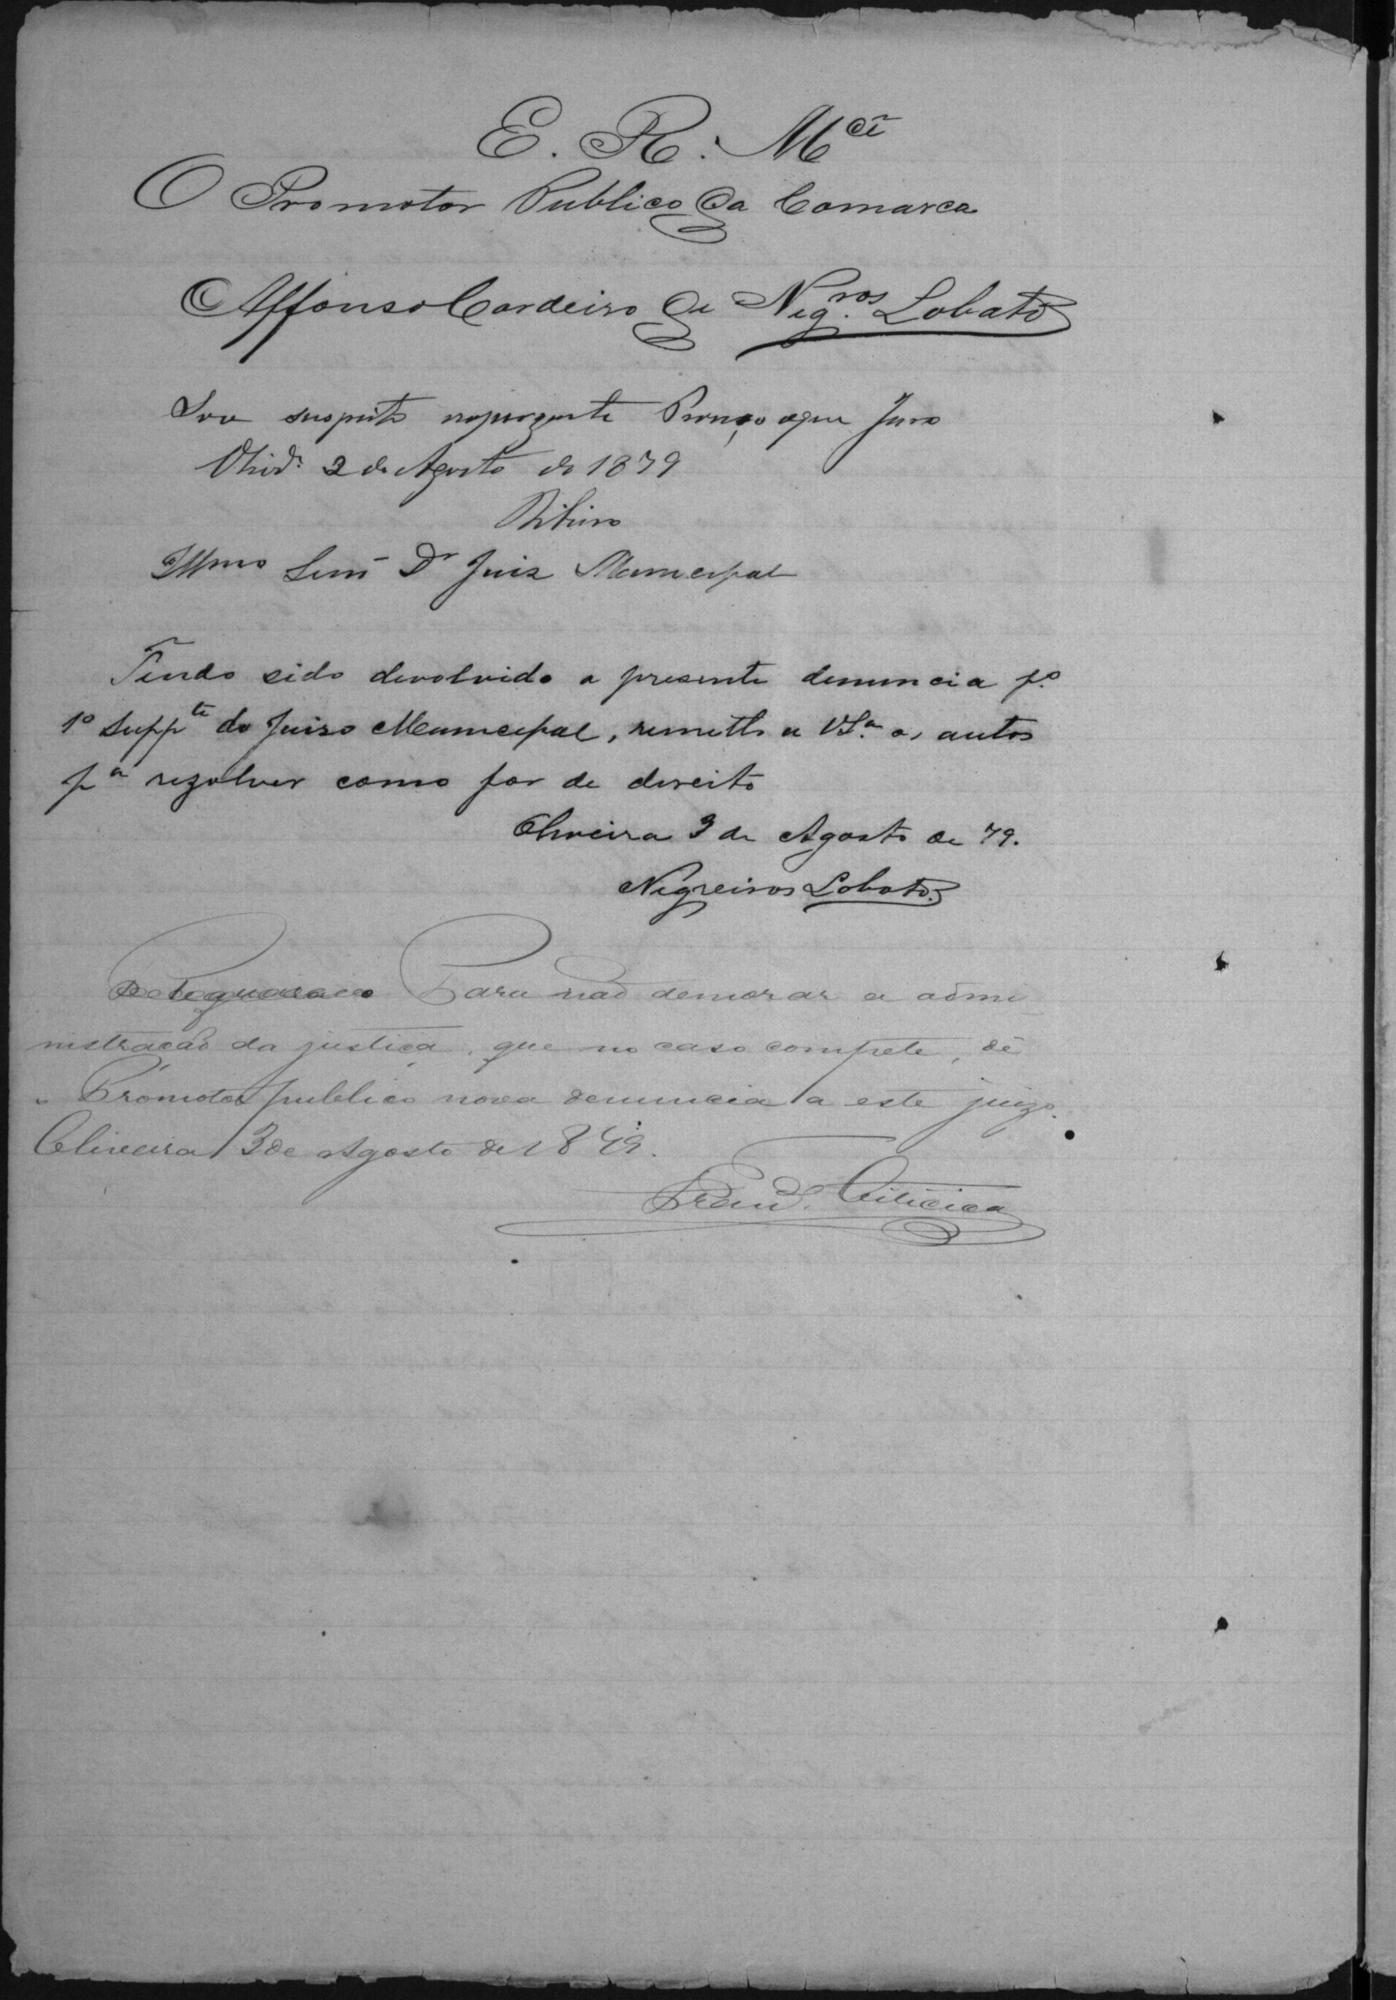 E. R. M.ce
O Promotor Publico da Comarca
Affonso Cordeiro de Neg.ros Lobato
Sou suspeito no presente o que Juro
Olivr.a 2 de Agosto de 1879
Ribeiro
Illmo Senr Dr Juiz Municipal
Tendo sido devolvido a presente denuncia p.o
1o Supp.te do Juiso Municipal, remetto a VS.a os autos
p.a rezolver como for de direito
Oliveira 3 de Agosto de 79.
Negreiros Lobato.
Para não demorar a admi_
nistração da justiça, que no caso compete, dê
o Promotor publico nova denuncia a este juizo.
Oliveira 3 de Agosto de 1879.